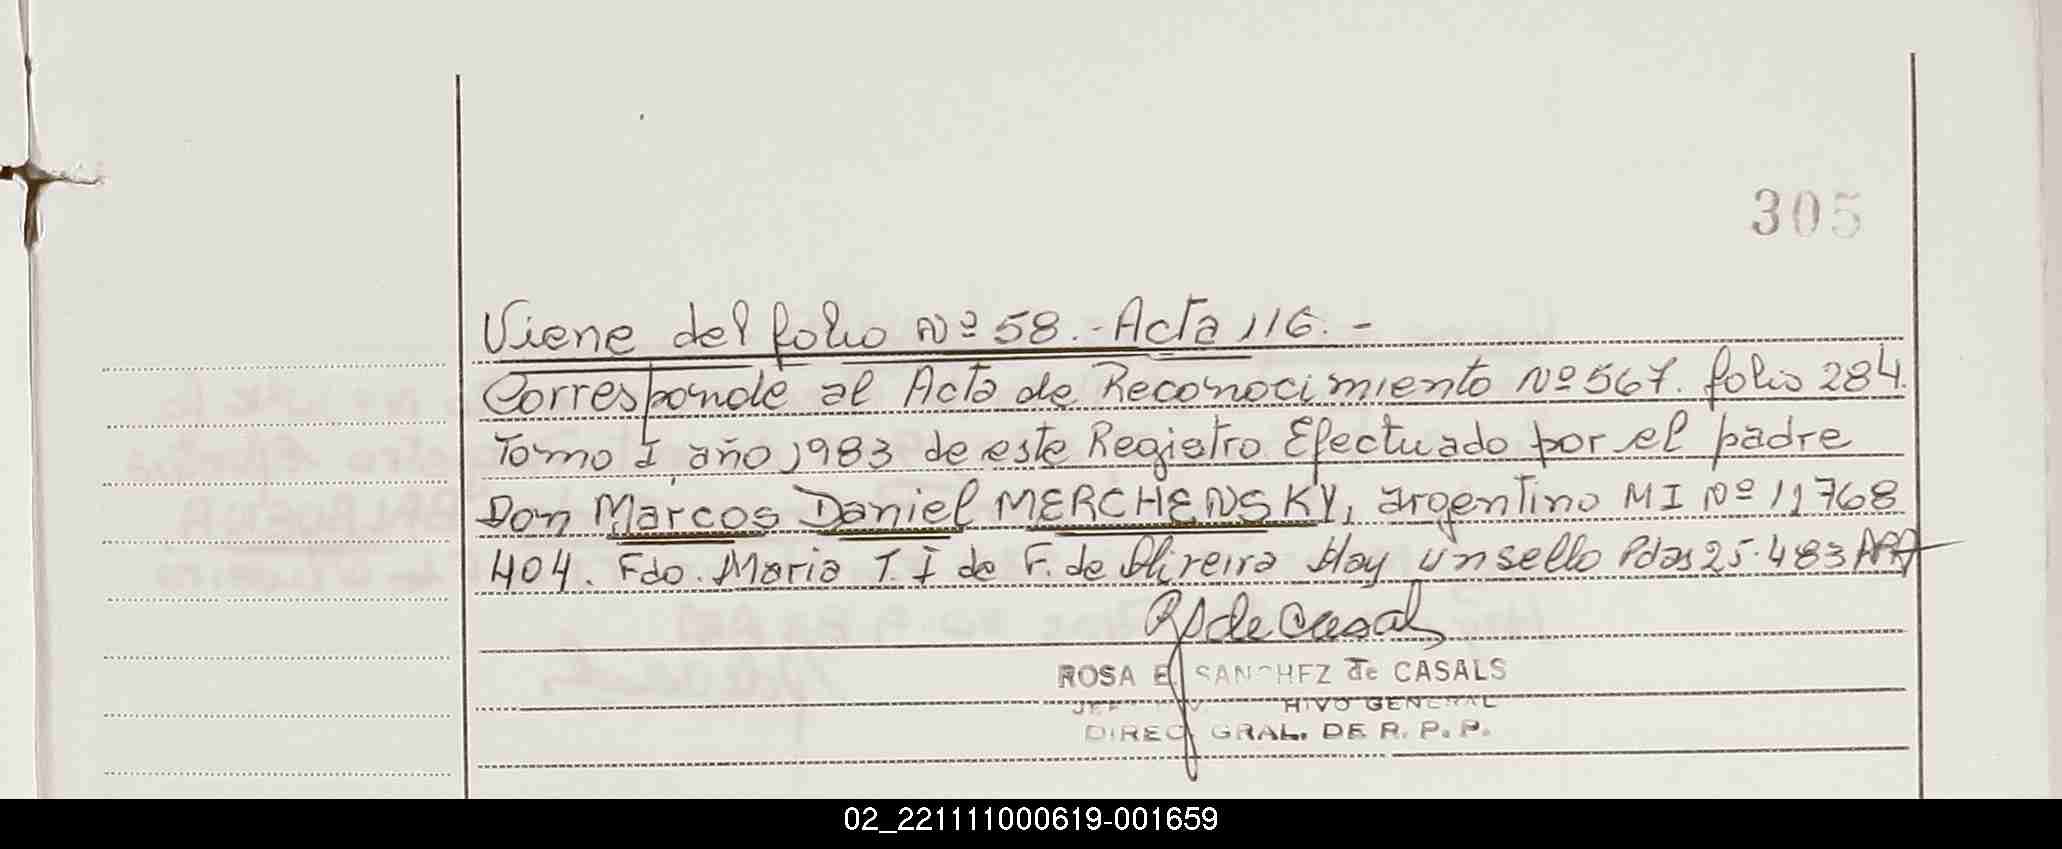 305
Viene del folio Nº 58.- Acta 116.-
Corresponde al Acta de Reconocimiento Nº 567. folio 284.
Tomo I año 1983 de este Registro Efectuado por el padre
Don Marcos Daniel MERCHENSKY, argentino MI Nº 11768
404. Fdo. Maria T. I de F. de Olireira Hay un sello Pdas 25.483
RS de Casals
ROSA E SANCHEZ de CASALS
HIVO GENERAL
DIREC GRAL. DE R. P. P.
02_221111000619-001659